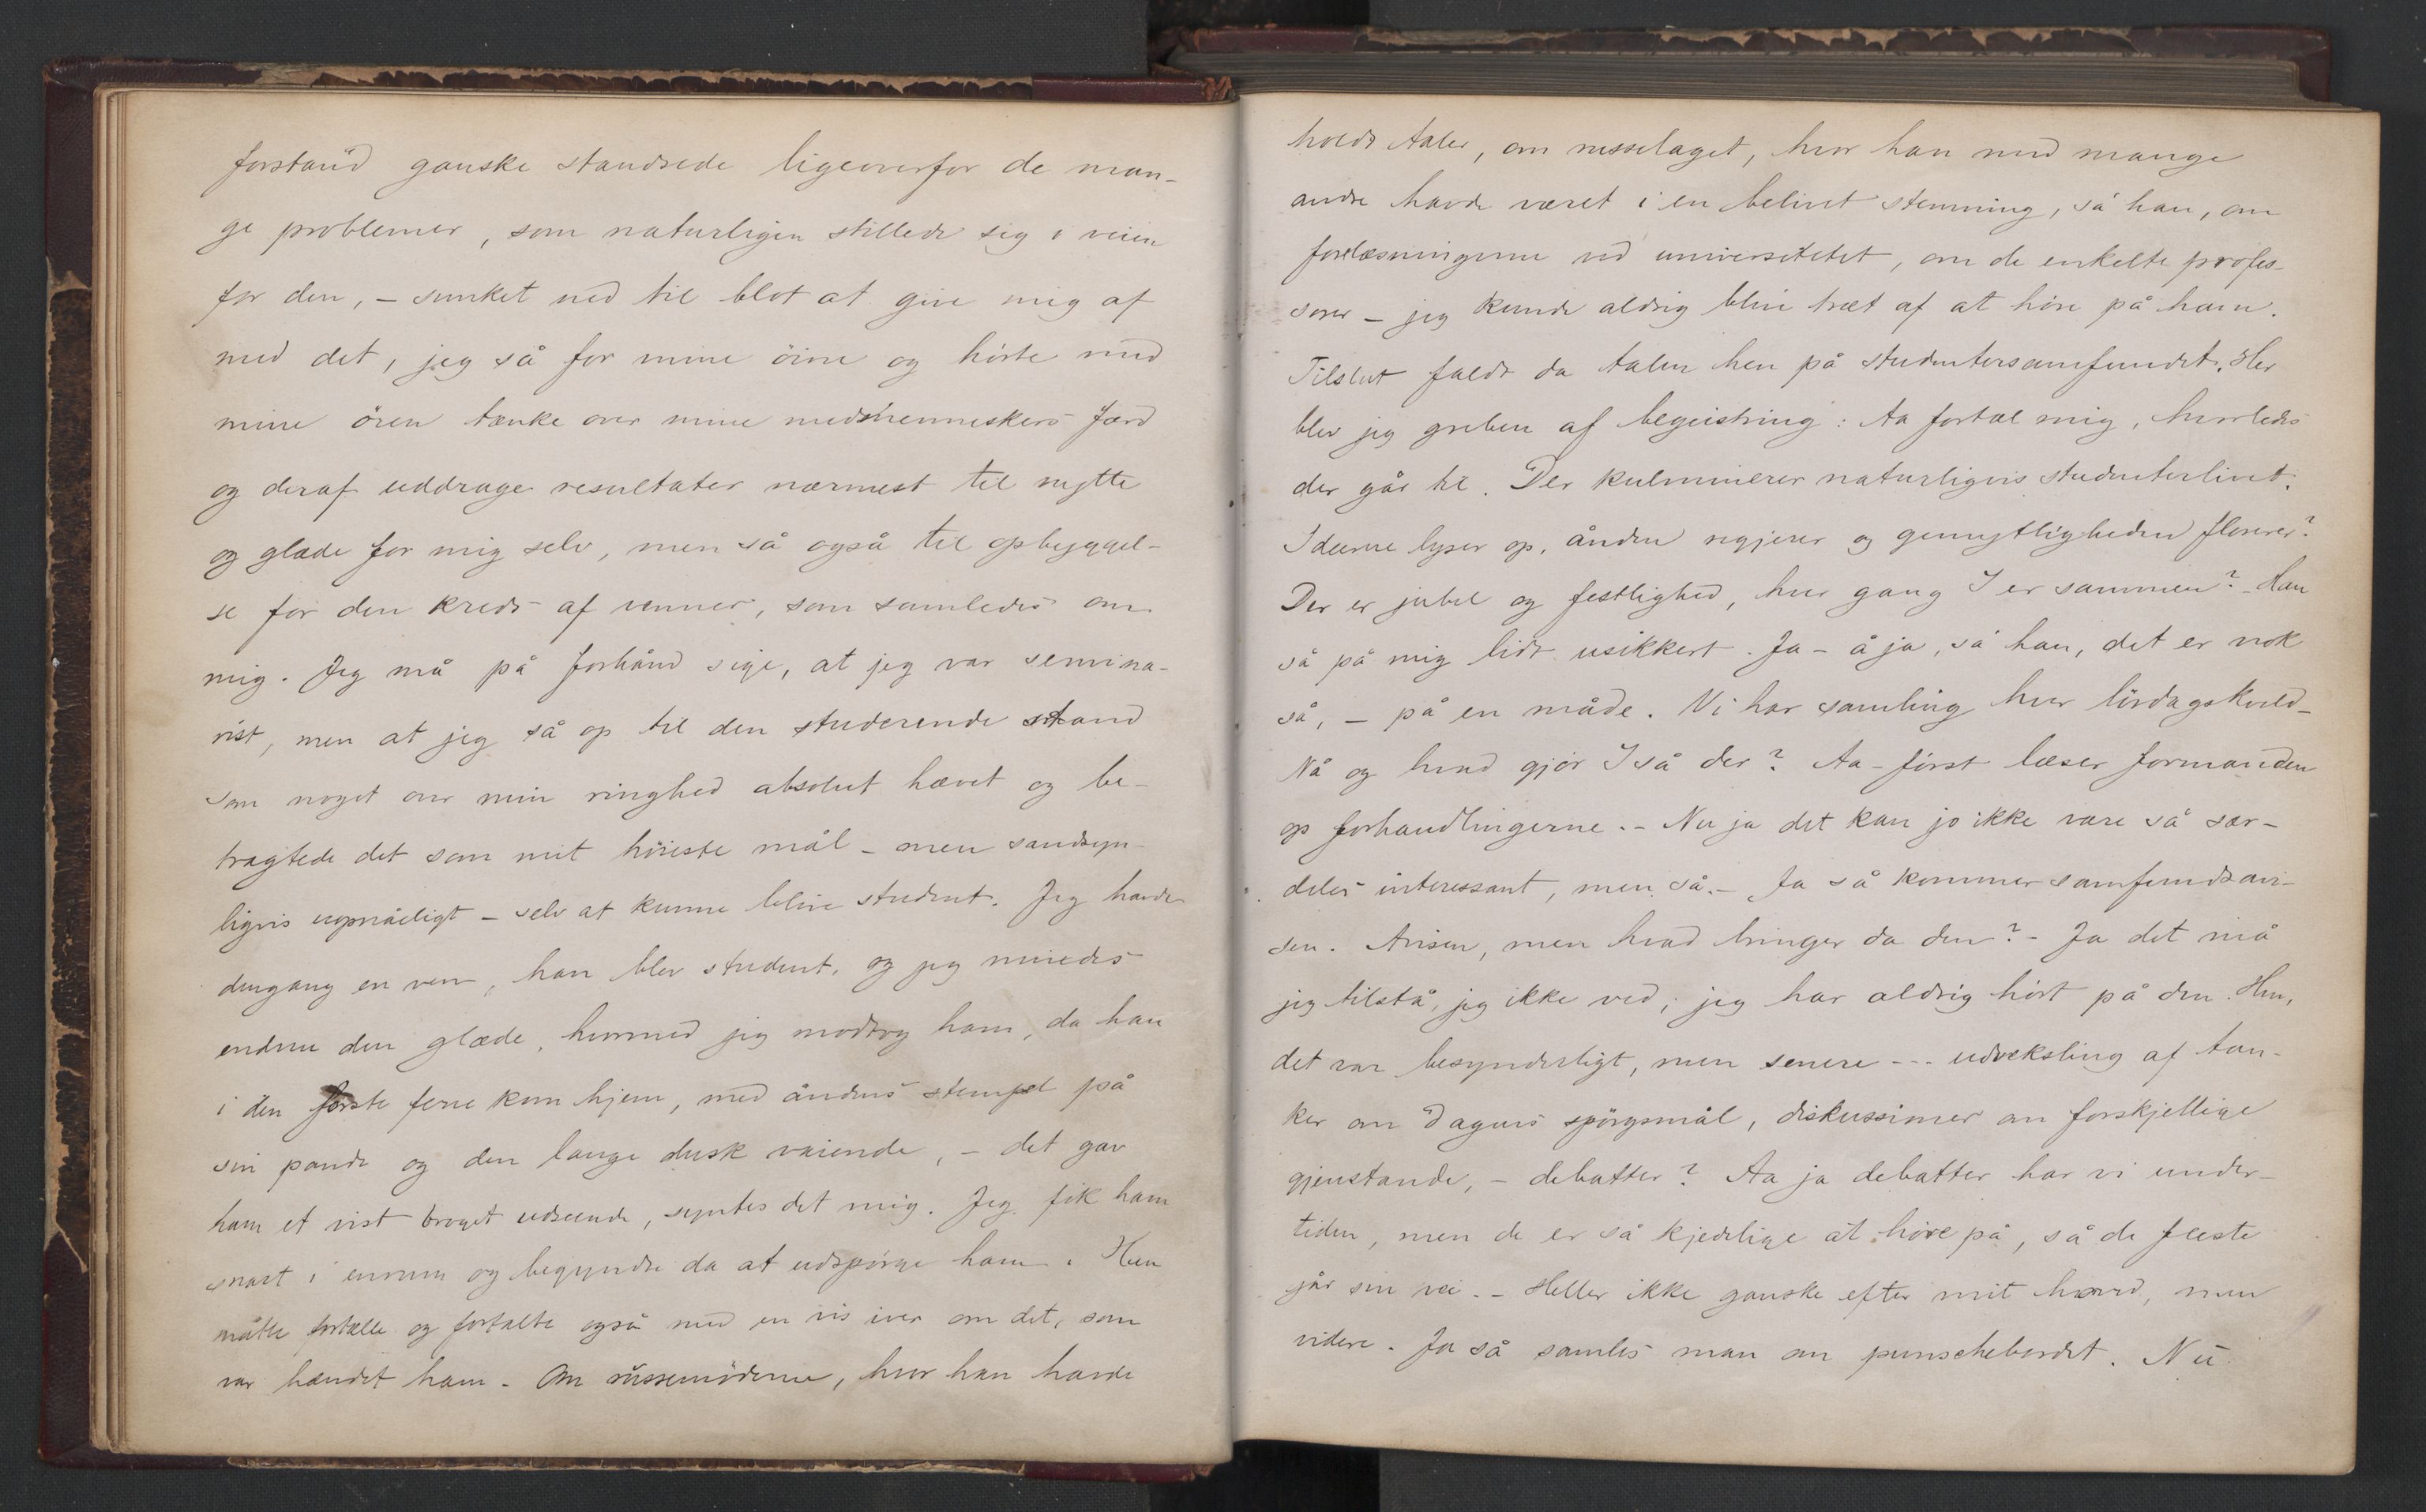 forstand ganske standsede ligeoverfor de man-
ge problemer, som naturligen stillede sig i veien
for den, – sunket ned til blot at give mig af
med det, jeg så for mine öine og hörte med
mine ören tænke over mine medmenneskers færd
og deraf uddrage resultater nærmest til nytte
og glæde for mig selv, men så også til opbyggel-
se for den kreds af venner, som samledes om
mig. Jeg må på forhånd sige, at jeg var semina-
rist, men at jeg så op til den studerende stand
som noget over min ringhed absolut hævet og be-
tragtede det som mit höieste mål – men sandsyn-
ligvis uopnåeligt – selv at kunne blive student. Jeg havde
dengang en ven, han blev student, og jeg mindes
endnu den glæde, hvormed jeg modtog ham, da han
i den förste ferie kom hjem, med åndens stempel på
sin pande og den lange dusk vaiende, – det gav
ham et vist broget udseende, syntes det mig. Jeg fik ham
snart i enrum og begyndte da at udspörge ham. Han
måtte fortælle og fortalte også med en vis iver om det, som
var hændet ham. Om russemöderne, hvor han havde
holdt taler, om russelaget, hvor han med mange
andre havde været i en belivet stemning, sa' han, om
forelæsningerne ved universitetet, om de enkelte profes-
sorer – jeg kunde aldrig blive træt af at höre på ham.
Tilslut faldt da talen hen på studentersamfundet. Her
blev jeg greben af begeistring: Aa fortæl mig, hvorledes
der går til. Der kulminerer naturligvis studenterlivet.
Ideerne lyser op, ånden regjerer og gemytligheden florerer?
Der er jubel og festlighed, hver gang I er sammen? – Han
så på mig lidt usikkert. Ja – å ja, sa' han, det er nok
så, – på en måde. Vi har samling hver lördagskveld –
Nå og hvad gjör I så der? Aa – först læser formanden
op forhandlingerne. – Nu ja det kan jo ikke være så sær-
deles interessant, men så. – Ja så kommer samfundsavi-
sen. Avisen, men hvad bringer da den? – Ja det må
jeg tilstå, jeg ikke ved, jeg har aldrig hört på den. Hm,
det var besynderligt, men senere --- udveksling af tan-
ker om dagens spörgsmål, diskussioner om forskjellige
gjenstande, – debatter? Aa ja debatter har vi under-
tiden, men de er så kjedelige at höre på, så de fleste
går sin vei. – Heller ikke ganske efter mit hoved, men
videre. Ja så samles man om punschebordet. Nu